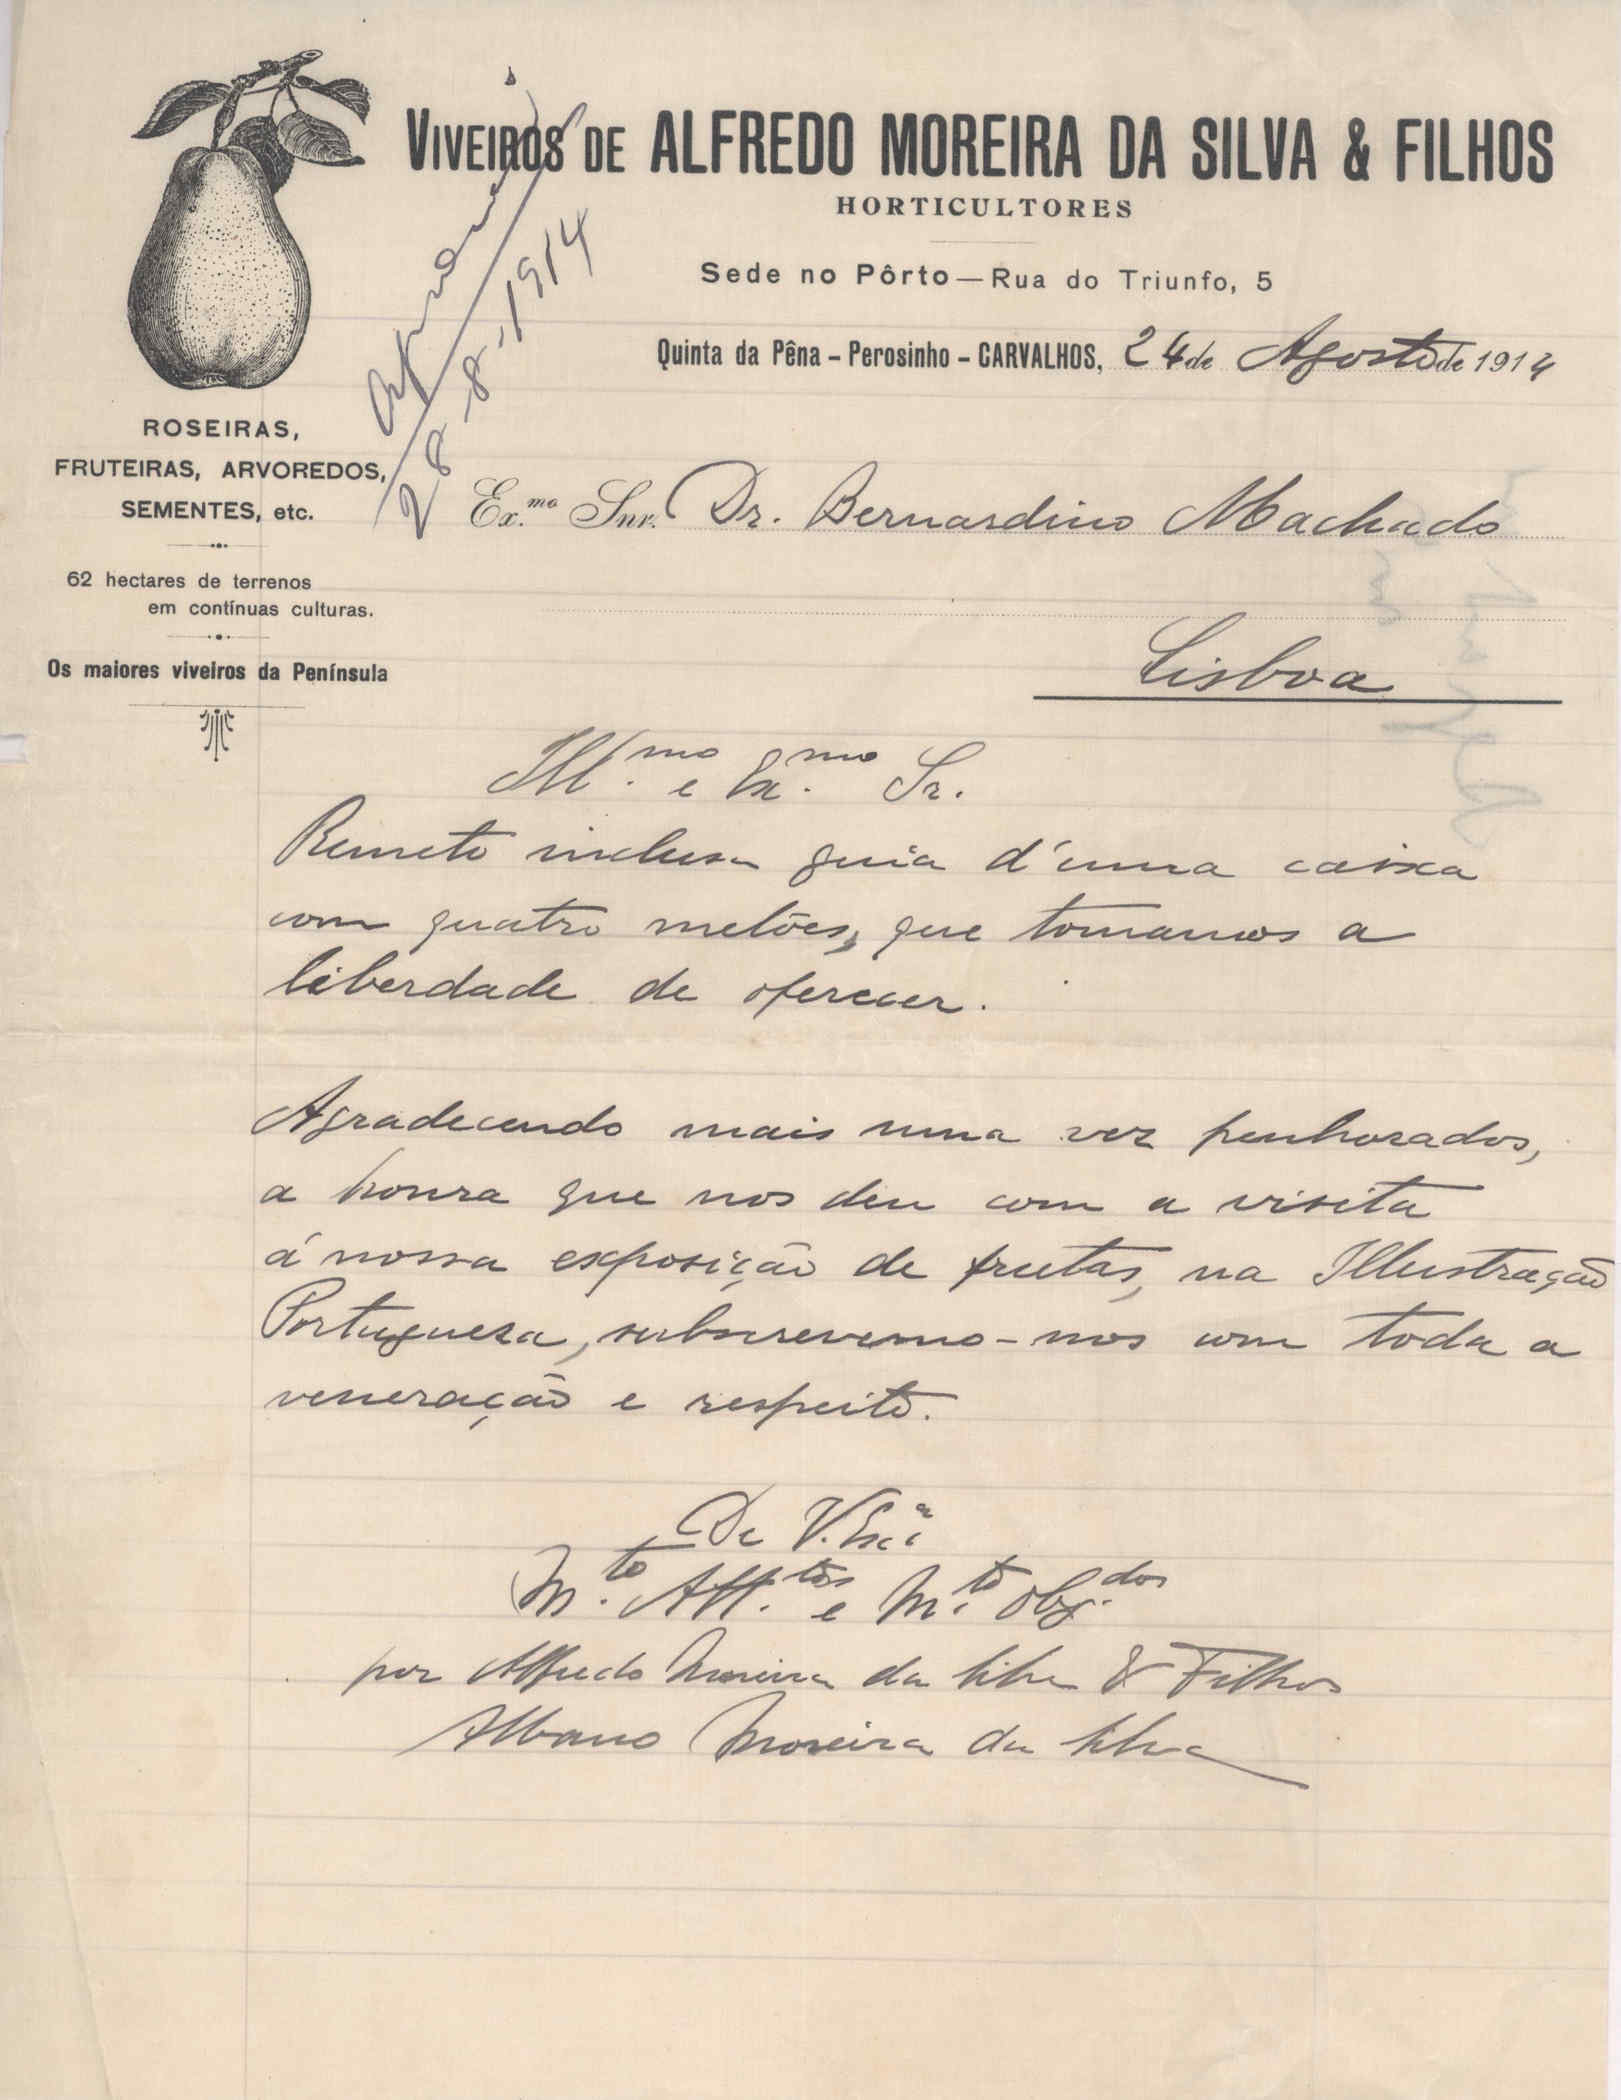 VIVEIROS DE ALFREDO MOREIRA DA SILVA & FILHOS
HORTICULTORES
Sede no Pôrto — Rua do Triunfo, 5
Quinta da Pêna - Perosinho - CARVALHOS, 24 de Agosto de 1914
28-8-1914
ROSEIRAS,
FRUTEIRAS, ARVOREDOS,
SEMENTES, etc.
62 hectares de terrenos
em contínuas culturas.
Os maiores viveiros da Península
Ex.mo Snr. Dr. Bernardino Machado
Lisboa
Ill.mo e Ex.mo Sr.
Remeto inclusa guia d'uma caixa
com quatro melões, que tomamos a
liberdade de oferecer.
Agradecendo mais uma vez penhorados,
a honra que nos deu com a visita
á nossa exposição de frutas, na Illustração
Portugueza, subscrevemo-nos com toda a
veneração e respeito.
De V. Exc.ia
M.to Att.tos e M.to Obg.dos
por Alfredo Moreira da Silva & Filhos
Albano Moreira da Silva